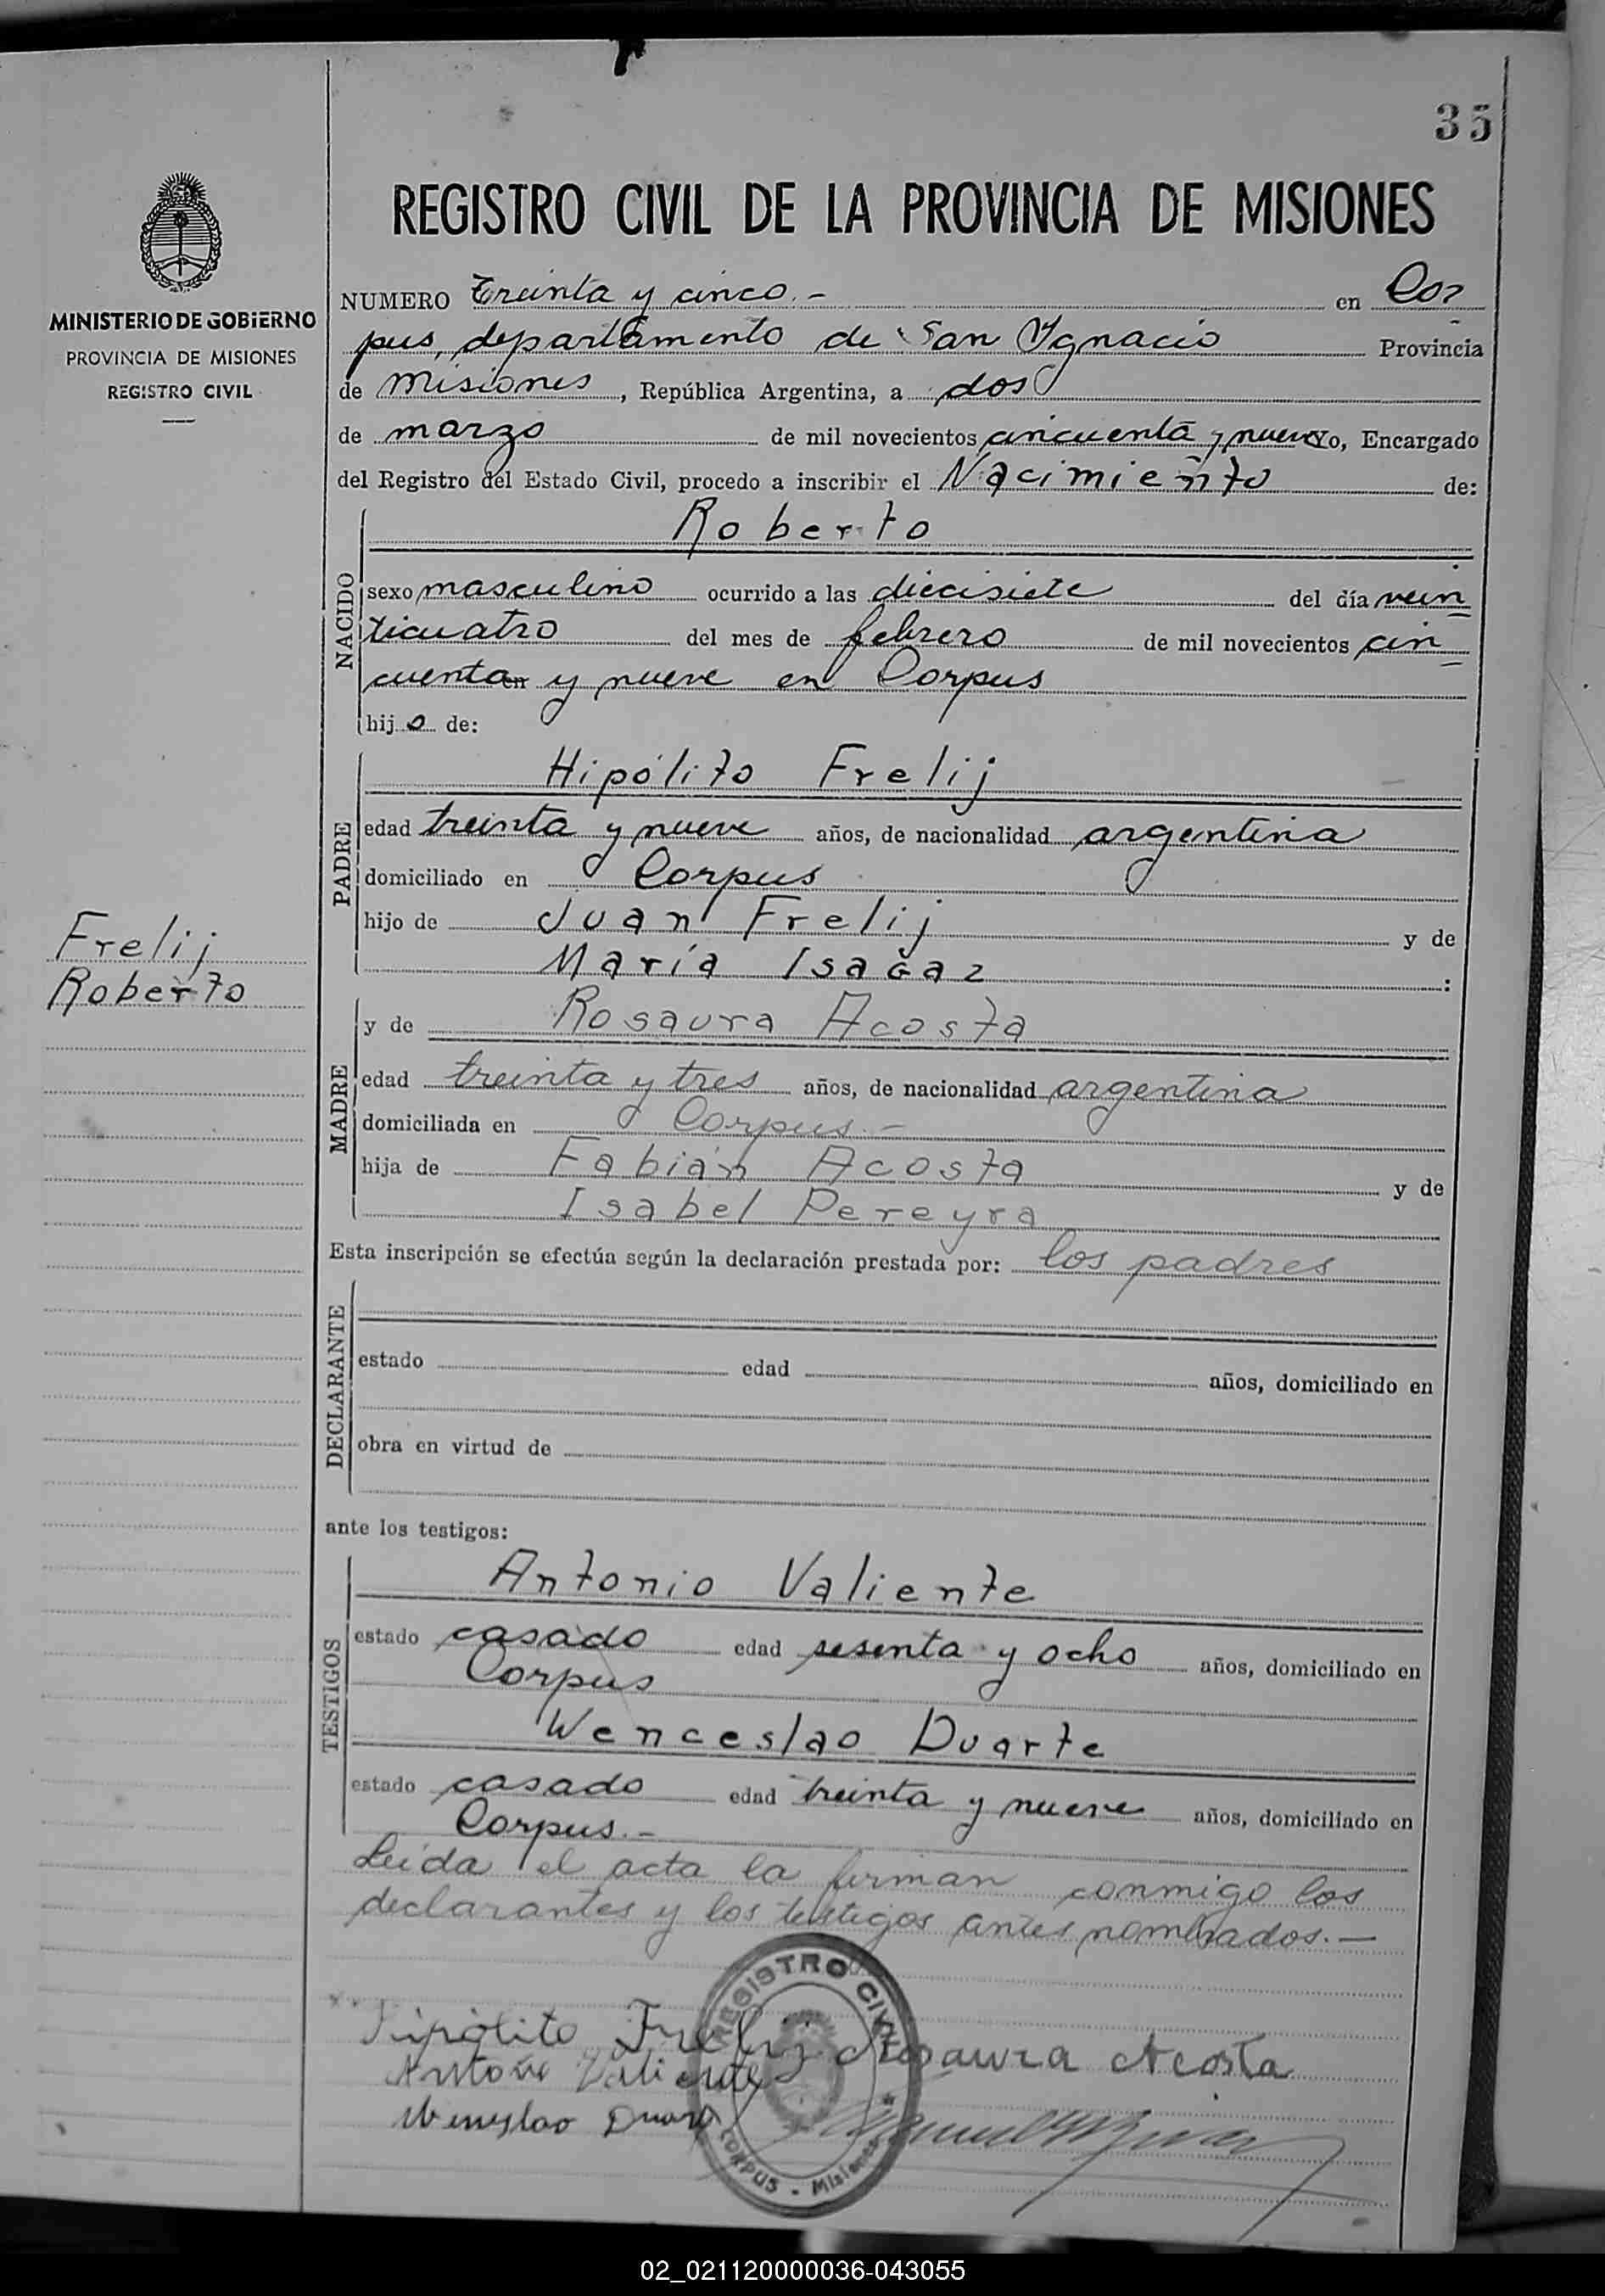 35
REGISTRO CIVIL DE LA PROVINCIA DE MISIONES
MINISTERIO DE GOBIERNO
PROVINCIA DE MISIONES
REGISTRO CIVIL
NUMERO Treinta y cinco.- en Cor
pus, departamento de San Ygnacio Provincia
de misiones, República Argentina, a dos
de marzo de mil novecientos cincuenta y nueve yo, Encargado
del Registro del Estado Civil, procedo a inscribir el Nacimiento de:
Roberto
NACIDO
sexo masculino ocurrido a las diecisiete del día vein
ticuatro del mes de febrero de mil novecientos cin
cuenta y nueve en Corpus
hijo de:
Hipólito Frelij
PADRE
edad treinta y nueve años, de nacionalidad argentina
domiciliado en Corpus
hijo de Juan Frelij y de
María Isagaz :
Frelij
Roberto
y de Rosaura Acosta
MADRE
edad treinta y tres años, de nacionalidad argentina
domiciliada en Corpus.-
hija de Fabián Acosta y de
Isabel Pereyra
Esta inscripción se efectúa según la declaración prestada por: los padres
DECLARANTE
estado edad años, domiciliado en
obra en virtud de
ante los testigos:
TESTIGOS
Antonio Valiente
estado casado edad sesenta y ocho años, domiciliado en
Corpus
Wenceslao Duarte
estado casado edad treinta y nueve años, domiciliado en
Corpus.-
Leída el acta la firman conmigo los
declarantes y los testigos antes nombrados.-
Hipólito Frelij Rosaura Acosta
Antonio Valiente
Wenceslao Duarte
REGISTRO CIVIL
CORPUS - Misiones
02_021120000036-043055